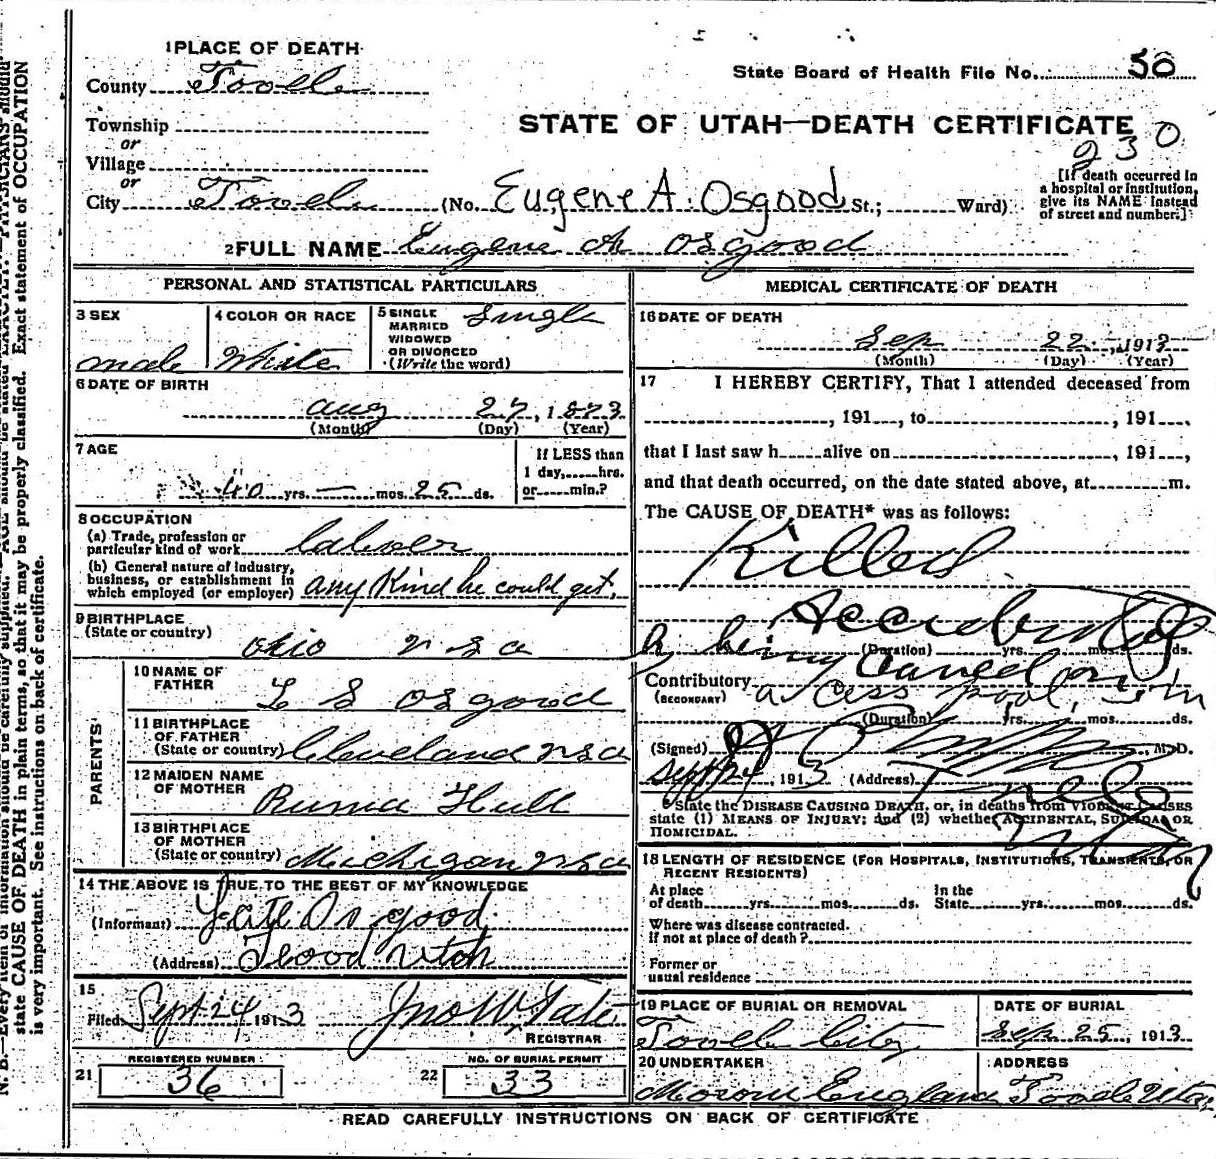 1 PLACE OF DEATH
State Board of Health File No. 50
County Tooele
STATE OF UTAH—DEATH CERTIFICATE
Township
or
Village
or
City Tooele (No. Eugene A. Osgood St.; Ward)
230
[If death occurred in
a hospital or institution,
give its NAME instead
of street and number.]
2 FULL NAME Eugene A Osgood
PERSONAL AND STATISTICAL PARTICULARS
3 SEX
male
4 COLOR OR RACE
White
5 SINGLE
MARRIED
WIDOWED
OR DIVORCED
(Write the word)
Single
6 DATE OF BIRTH
Aug 27, 1873
(Month) (Day) (Year)
7 AGE
40 yrs. — mos. 25 ds.
If LESS than
1 day, hrs.
or min.?
8 OCCUPATION
(a) Trade, profession or
particular kind of work labor
(b) General nature of industry,
business, or establishment in
which employed (or employer) any Kind he could get.
9 BIRTHPLACE
(State or country)
Ohio U S A
PARENTS
10 NAME OF
FATHER
L S Osgood
11 BIRTHPLACE
OF FATHER
(State or country) Cleveland U S A
12 MAIDEN NAME
OF MOTHER
Hull
13 BIRTHPLACE
OF MOTHER
(State or country) Michigan U S A
14 THE ABOVE IS TRUE TO THE BEST OF MY KNOWLEDGE
(Informant) Osgood.
(Address) Utah
15
Filed Sept 24 1913 Jno W Tate
REGISTRAR
REGISTERED NUMBER
21 36
NO. OF BURIAL PERMIT
22 33
MEDICAL CERTIFICATE OF DEATH
16 DATE OF DEATH
Sep 22, 1913
(Month) (Day) (Year)
17 I HEREBY CERTIFY, That I attended deceased from
, 191 , to , 191 ,
that I last saw h alive on , 191 ,
and that death occurred, on the date stated above, at m.
The CAUSE OF DEATH* was as follows:
Killed
Accidentally
(Duration) yrs. mos. ds.
by being caved on
Contributory a cess pool, in
(SECONDARY)
(Duration) yrs. mos. ds.
(Signed) , M.D.
Sept 24, 1913 (Address) Tooele
Utah
* State the DISEASE CAUSING DEATH, or, in deaths from VIOLENT CAUSES
state (1) MEANS OF INJURY; and (2) whether ACCIDENTAL, SUICIDAL OR
HOMICIDAL.
18 LENGTH OF RESIDENCE (FOR HOSPITALS, INSTITUTIONS, TRANSIENTS, OR
RECENT RESIDENTS)
At place
of death yrs. mos. ds.
In the
State yrs. mos. ds.
Where was disease contracted.
If not at place of death?
Former or
usual residence
19 PLACE OF BURIAL OR REMOVAL
Tooele City
DATE OF BURIAL
Sep 25, 1913
20 UNDERTAKER
Moroni England
ADDRESS
Tooele Utah
READ CAREFULLY INSTRUCTIONS ON BACK OF CERTIFICATE
state CAUSE OF DEATH in plain terms, so that it may be properly classified. Exact statement of OCCUPATION
is very important. See instructions on back of certificate.